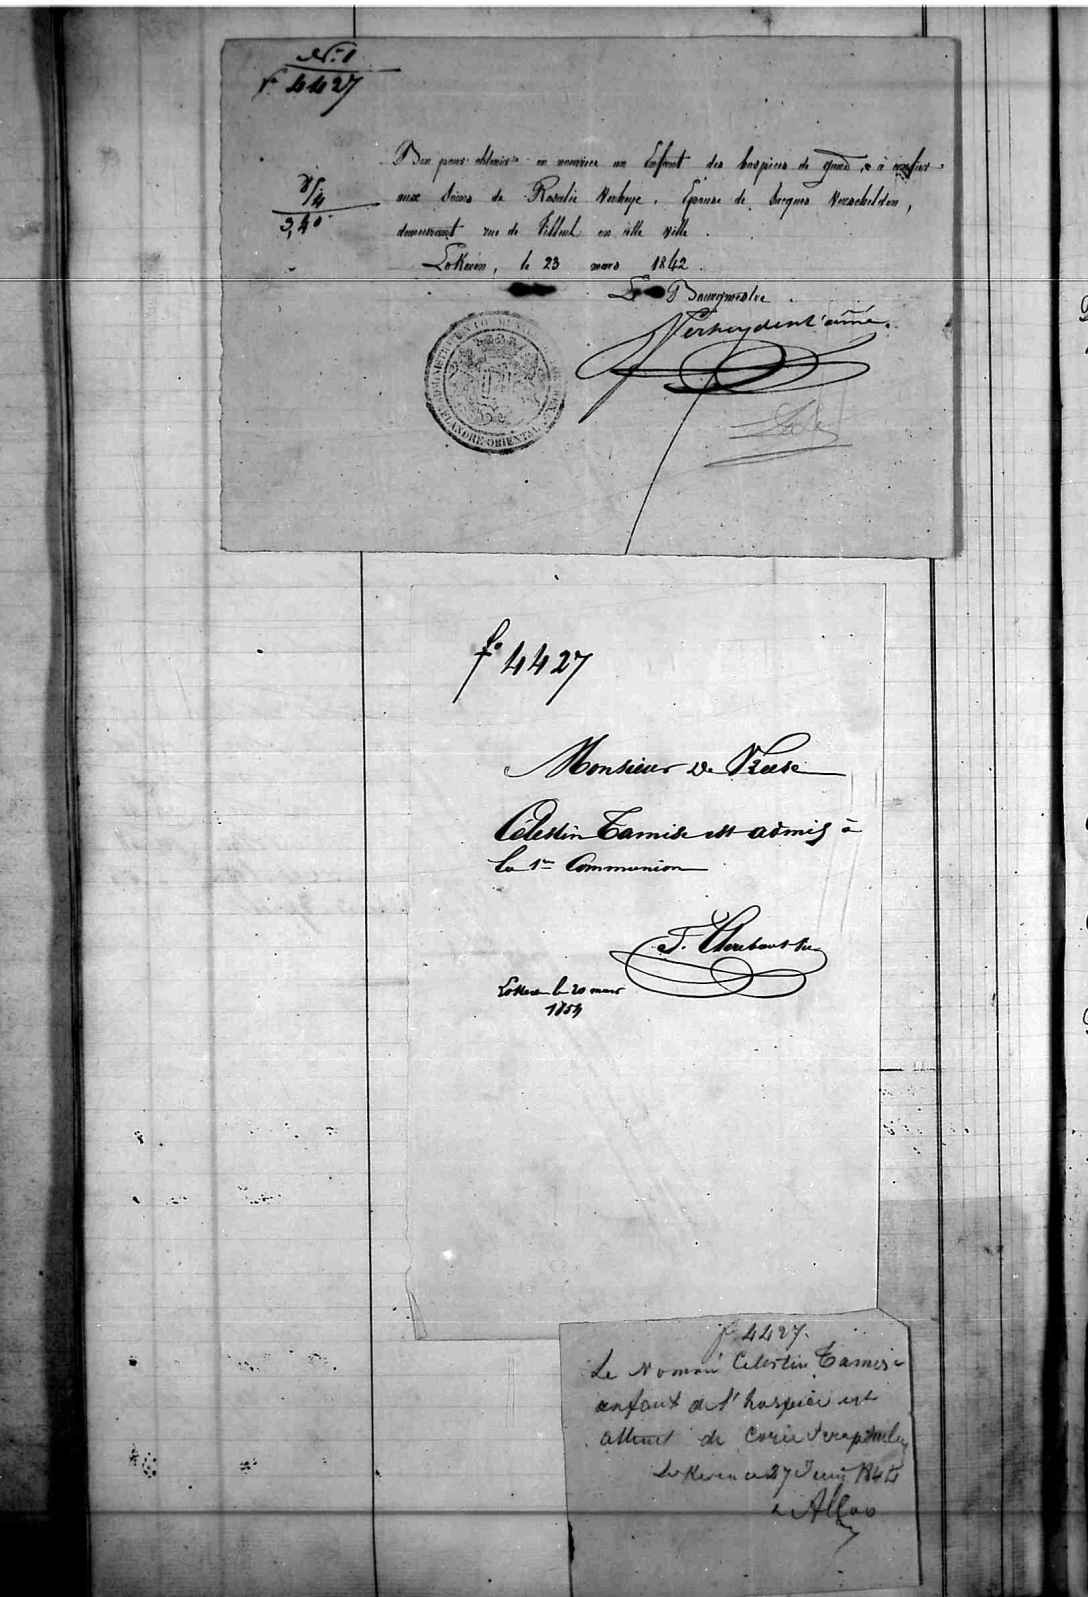 N° 1
f° 4427
Bon pour obtenir en nourrice un Enfant des hospices de gand, à confier
aux soins de Rosalie Verheye, Epouse de Jacques Verschelden,
demeurant rue de Tilleul en cette ville.
Lokeren, le 23 mars 1842.
Le Bourgmestre
3/4
3,40
FLANDRE-ORIENTALE
f° 4427
Monsieur De Vreese
Célestin Tamise est admis à
la 1re Communion
Lokeren le 20 mars
1854
f° 4427.
Le Nommé Celestin Tamise
enfant de l'hospice est
atteint de
Lokeren ce 27 Juin